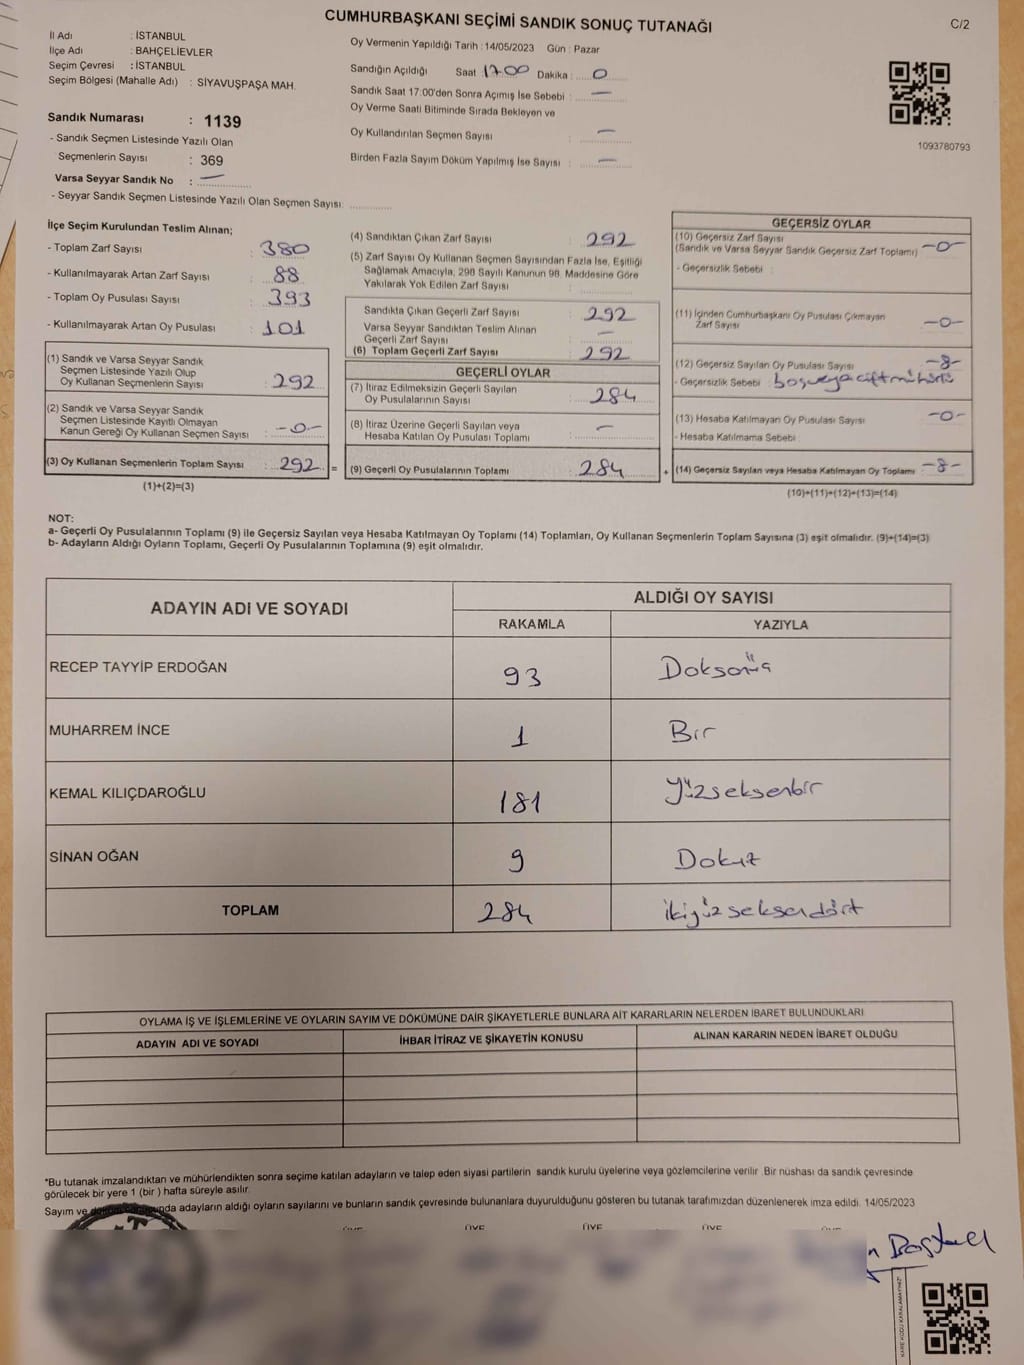 CUMHURBAŞKANI SEÇİMİ SANDIK SONUÇ TUTANAĞI
C/2
İl Adı : İSTANBUL
İlçe Adı : BAHÇELİEVLER
Seçim Çevresi : İSTANBUL
Seçim Bölgesi (Mahalle Adı) : SİYAVUŞPAŞA MAH.
Sandık Numarası : 1139
- Sandık Seçmen Listesinde Yazılı Olan
Seçmenlerin Sayısı : 369
Varsa Seyyar Sandık No : —
- Seyyar Sandık Seçmen Listesinde Yazılı Olan Seçmen Sayısı:
Oy Vermenin Yapıldığı Tarih : 14/05/2023 Gün : Pazar
Sandığın Açıldığı Saat 17.00 Dakika : 0
Sandık Saat 17:00'den Sonra Açımış İse Sebebi : —
Oy Verme Saati Bitiminde Sırada Bekleyen ve
Oy Kullandırılan Seçmen Sayısı : —
Birden Fazla Sayım Döküm Yapılmış İse Sayısı : —
1093780793
İlçe Seçim Kurulundan Teslim Alınan;
- Toplam Zarf Sayısı : 380
- Kullanılmayarak Artan Zarf Sayısı : 88
- Toplam Oy Pusulası Sayısı : 393
- Kullanılmayarak Artan Oy Pusulası : 101
(1) Sandık ve Varsa Seyyar Sandık
Seçmen Listesinde Yazılı Olup
Oy Kullanan Seçmenlerin Sayısı : 292
(2) Sandık ve Varsa Seyyar Sandık
Seçmen Listesinde Kayıtlı Olmayan
Kanun Gereği Oy Kullanan Seçmen Sayısı : -0-
(3) Oy Kullanan Seçmenlerin Toplam Sayısı : 292 =
(1)+(2)=(3)
(4) Sandıktan Çıkan Zarf Sayısı : 292
(5) Zarf Sayısı Oy Kullanan Seçmen Sayısından Fazla İse, Eşitliği
Sağlamak Amacıyla, 298 Sayılı Kanunun 98. Maddesine Göre
Yakılarak Yok Edilen Zarf Sayısı :
Sandıkta Çıkan Geçerli Zarf Sayısı : 292
Varsa Seyyar Sandıktan Teslim Alınan
Geçerli Zarf Sayısı : —
(6) Toplam Geçerli Zarf Sayısı : 292
GEÇERLİ OYLAR
(7) İtiraz Edilmeksizin Geçerli Sayılan
Oy Pusulalarının Sayısı : 284
(8) İtiraz Üzerine Geçerli Sayılan veya
Hesaba Katılan Oy Pusulası Toplamı : —
(9) Geçerli Oy Pusulalarının Toplamı : 284 +
GEÇERSİZ OYLAR
(10) Geçersiz Zarf Sayısı
(Sandık ve Varsa Seyyar Sandık Geçersiz Zarf Toplamı) -0-
- Geçersizlik Sebebi :
(11) İçinden Cumhurbaşkanı Oy Pusulası Çıkmayan
Zarf Sayısı -0-
(12) Geçersiz Sayılan Oy Pusulası Sayısı -8-
- Geçersizlik Sebebi : boş veya çift mühürlü
(13) Hesaba Katılmayan Oy Pusulası Sayısı -0-
- Hesaba Katılmama Sebebi :
(14) Geçersiz Sayılan veya Hesaba Katılmayan Oy Toplamı -8-
(10)+(11)+(12)+(13)=(14)
NOT:
a- Geçerli Oy Pusulalarının Toplamı (9) ile Geçersiz Sayılan veya Hesaba Katılmayan Oy Toplamı (14) Toplamları, Oy Kullanan Seçmenlerin Toplam Sayısına (3) eşit olmalıdır. (9)+(14)=(3)
b- Adayların Aldığı Oyların Toplamı, Geçerli Oy Pusulalarının Toplamına (9) eşit olmalıdır.
ADAYIN ADI VE SOYADI
ALDIĞI OY SAYISI
RAKAMLA YAZIYLA
RECEP TAYYİP ERDOĞAN 93
MUHARREM İNCE 1 Bir
KEMAL KILIÇDAROĞLU 181 Yüzseksenbir
SİNAN OĞAN 9 Dokuz
TOPLAM 284 ikiyüzseksendört
OYLAMA İŞ VE İŞLEMLERİNE VE OYLARIN SAYIM VE DÖKÜMÜNE DAİR ŞİKAYETLERLE BUNLARA AİT KARARLARIN NELERDEN İBARET BULUNDUKLARI
ADAYIN ADI VE SOYADI İHBAR İTİRAZ VE ŞİKAYETİN KONUSU ALINAN KARARIN NEDEN İBARET OLDUĞU
*Bu tutanak imzalandıktan ve mühürlendikten sonra seçime katılan adayların ve talep eden siyasi partilerin sandık kurulu üyelerine veya gözlemcilerine verilir. Bir nüshası da sandık çevresinde
görülecek bir yere 1 (bir) hafta süreyle asılır.
Sayım ve adayların aldığı oyların sayılarını ve bunların sandık çevresinde bulunanlara duyurulduğunu gösteren bu tutanak tarafımızdan düzenlenerek imza edildi. 14/05/2023
ÜYE ÜYE ÜYE